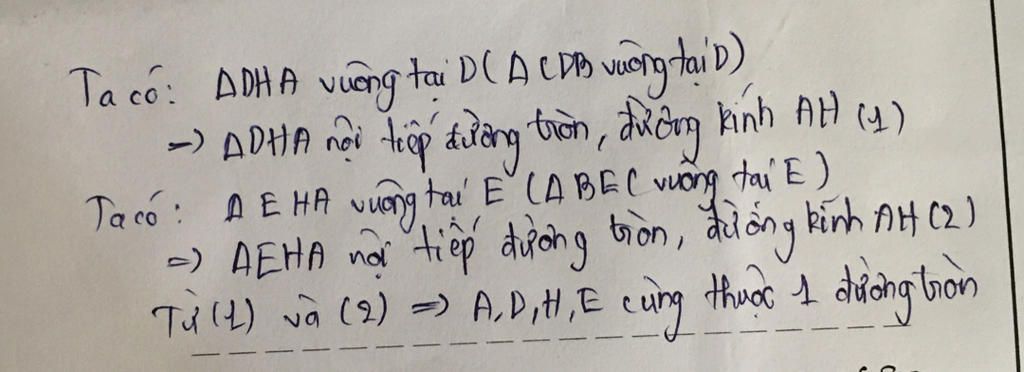 Ta có: ΔDHA vuông tại D (ΔCDB vuông tại D)
=> ΔDHA nội tiếp đường tròn, đường kính AH (1)
Ta có: ΔEHA vuông tại E (ΔBEC vuông tại E)
=> ΔEHA nội tiếp đường tròn, đường kính AH (2)
Từ (1) và (2) => A,D,H,E cùng thuộc 1 đường tròn